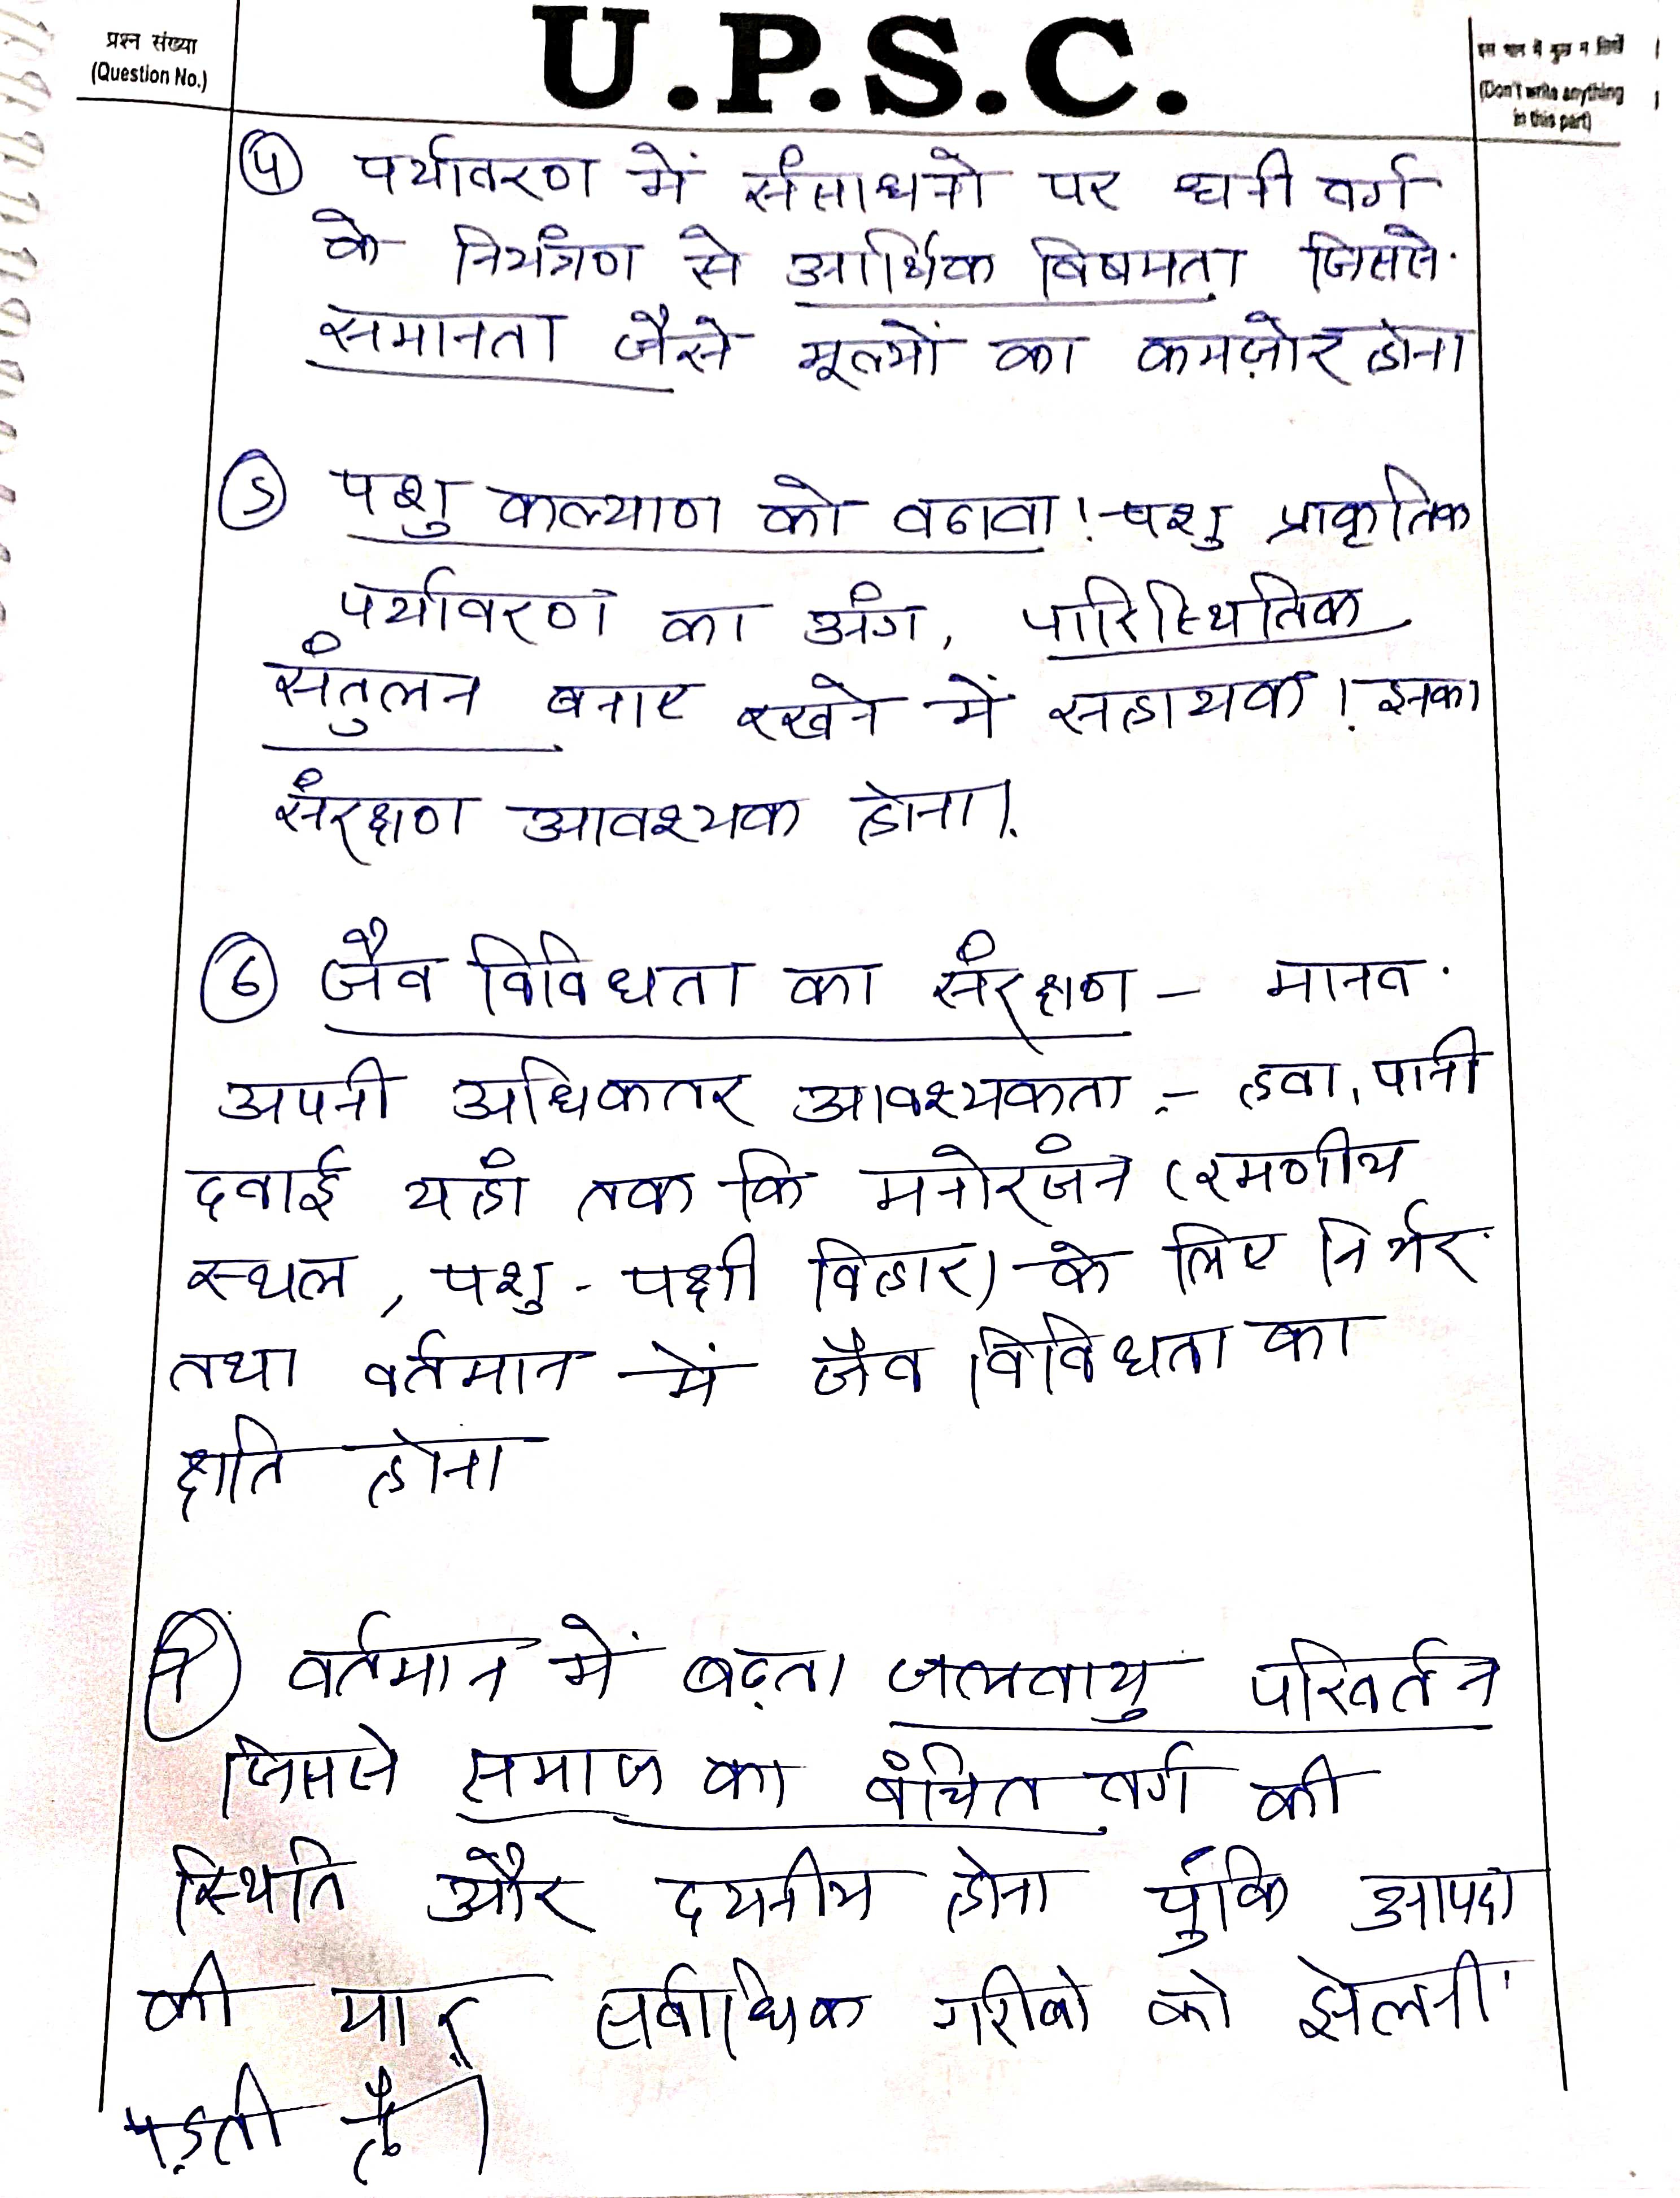 प्रश्न संख्या
(Question No.)
U.P.S.C.
इस भाग में कुछ न लिखें
(Don't write anything
in this part)
④ पर्यावरण में संसाधनो पर धनी वर्ग
के नियंत्रण से आर्थिक विषमता जिससे
समानता जैसे मूल्यों का कमज़ोर होना
⑤ पशु कल्याण को बढावा :- पशु प्राकृतिक
पर्यावरण का अंग, पारिस्थितिक
संतुलन बनाए रखने में सहायक। इनका
संरक्षण आवश्यक होना।
⑥ जैव विविधता का संरक्षण - मानव
अपनी अधिकतर आवश्यकता :- हवा, पानी
दवाई यहां तक कि मनोरंजन (रमणीय
स्थल, पशु-पक्षी विहार) के लिए निर्भर
तथा वर्तमान में जैव विविधता का
क्षति होना
⑦ वर्तमान में बढ़ता जलवायु परिवर्तन
जिससे समाज का वंचित वर्ग की
स्थिति और दयनीय होना चुंकि आपदा
की मार सर्वाधिक गरीबो को झेलनी
पड़ती है।